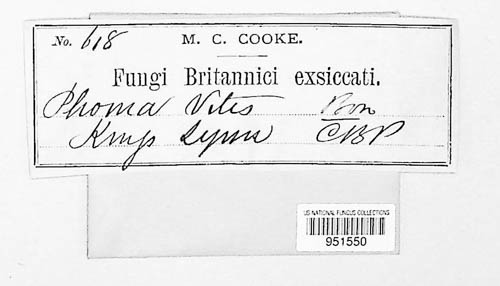 No. 618 M. C. COOKE.
Fungi Britannici exsiccati.
Phoma Vitis Bon
Kings Lynn CBP
US NATIONAL FUNGUS COLLECTIONS
951550